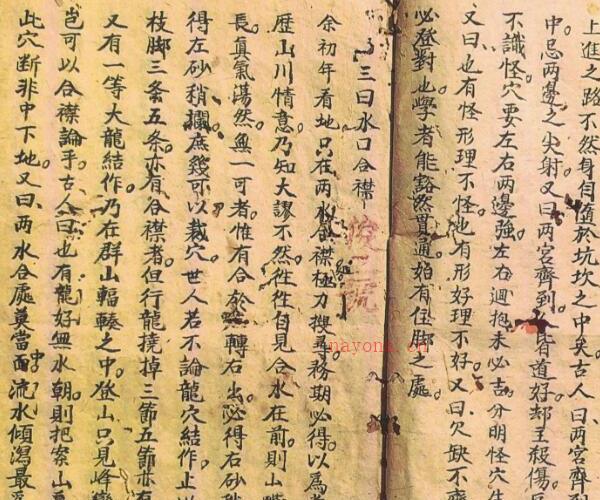 上進之路不然身自隨於坑坎之中矣古人曰兩宮齊
中忌两邊之尖射又曰两宫齊到皆道好却主殺傷
不識怪穴要左右两邊強左右迴抱未必吉分明怪穴生
又曰也有怪形理不怪也有形好理不好又曰欠缺不齊
必登對也學者能豁然貫通始有住脚之處
三曰水口合襟
余初年看地只在两水合襟極力搜尋務期必得以為
歷山川情意乃知大謬不然徃徃自見合水在前則山
長真氣蕩然無一可者惟有合於轉右出必得右砂
得左砂稍攔庶幾可以裁穴世人若不論龍穴結作止以
枝脚三条五条亦有合襟者但行龍撓掉三節五節亦有
又有一等大龍結作乃在群山輻輳之中登山只見峰巒
豈可以合襟論乎古人曰也有龍好無水朝則把案山
此穴断非中下地又曰两水合處莫當面中流水傾瀉最
nayona.cn